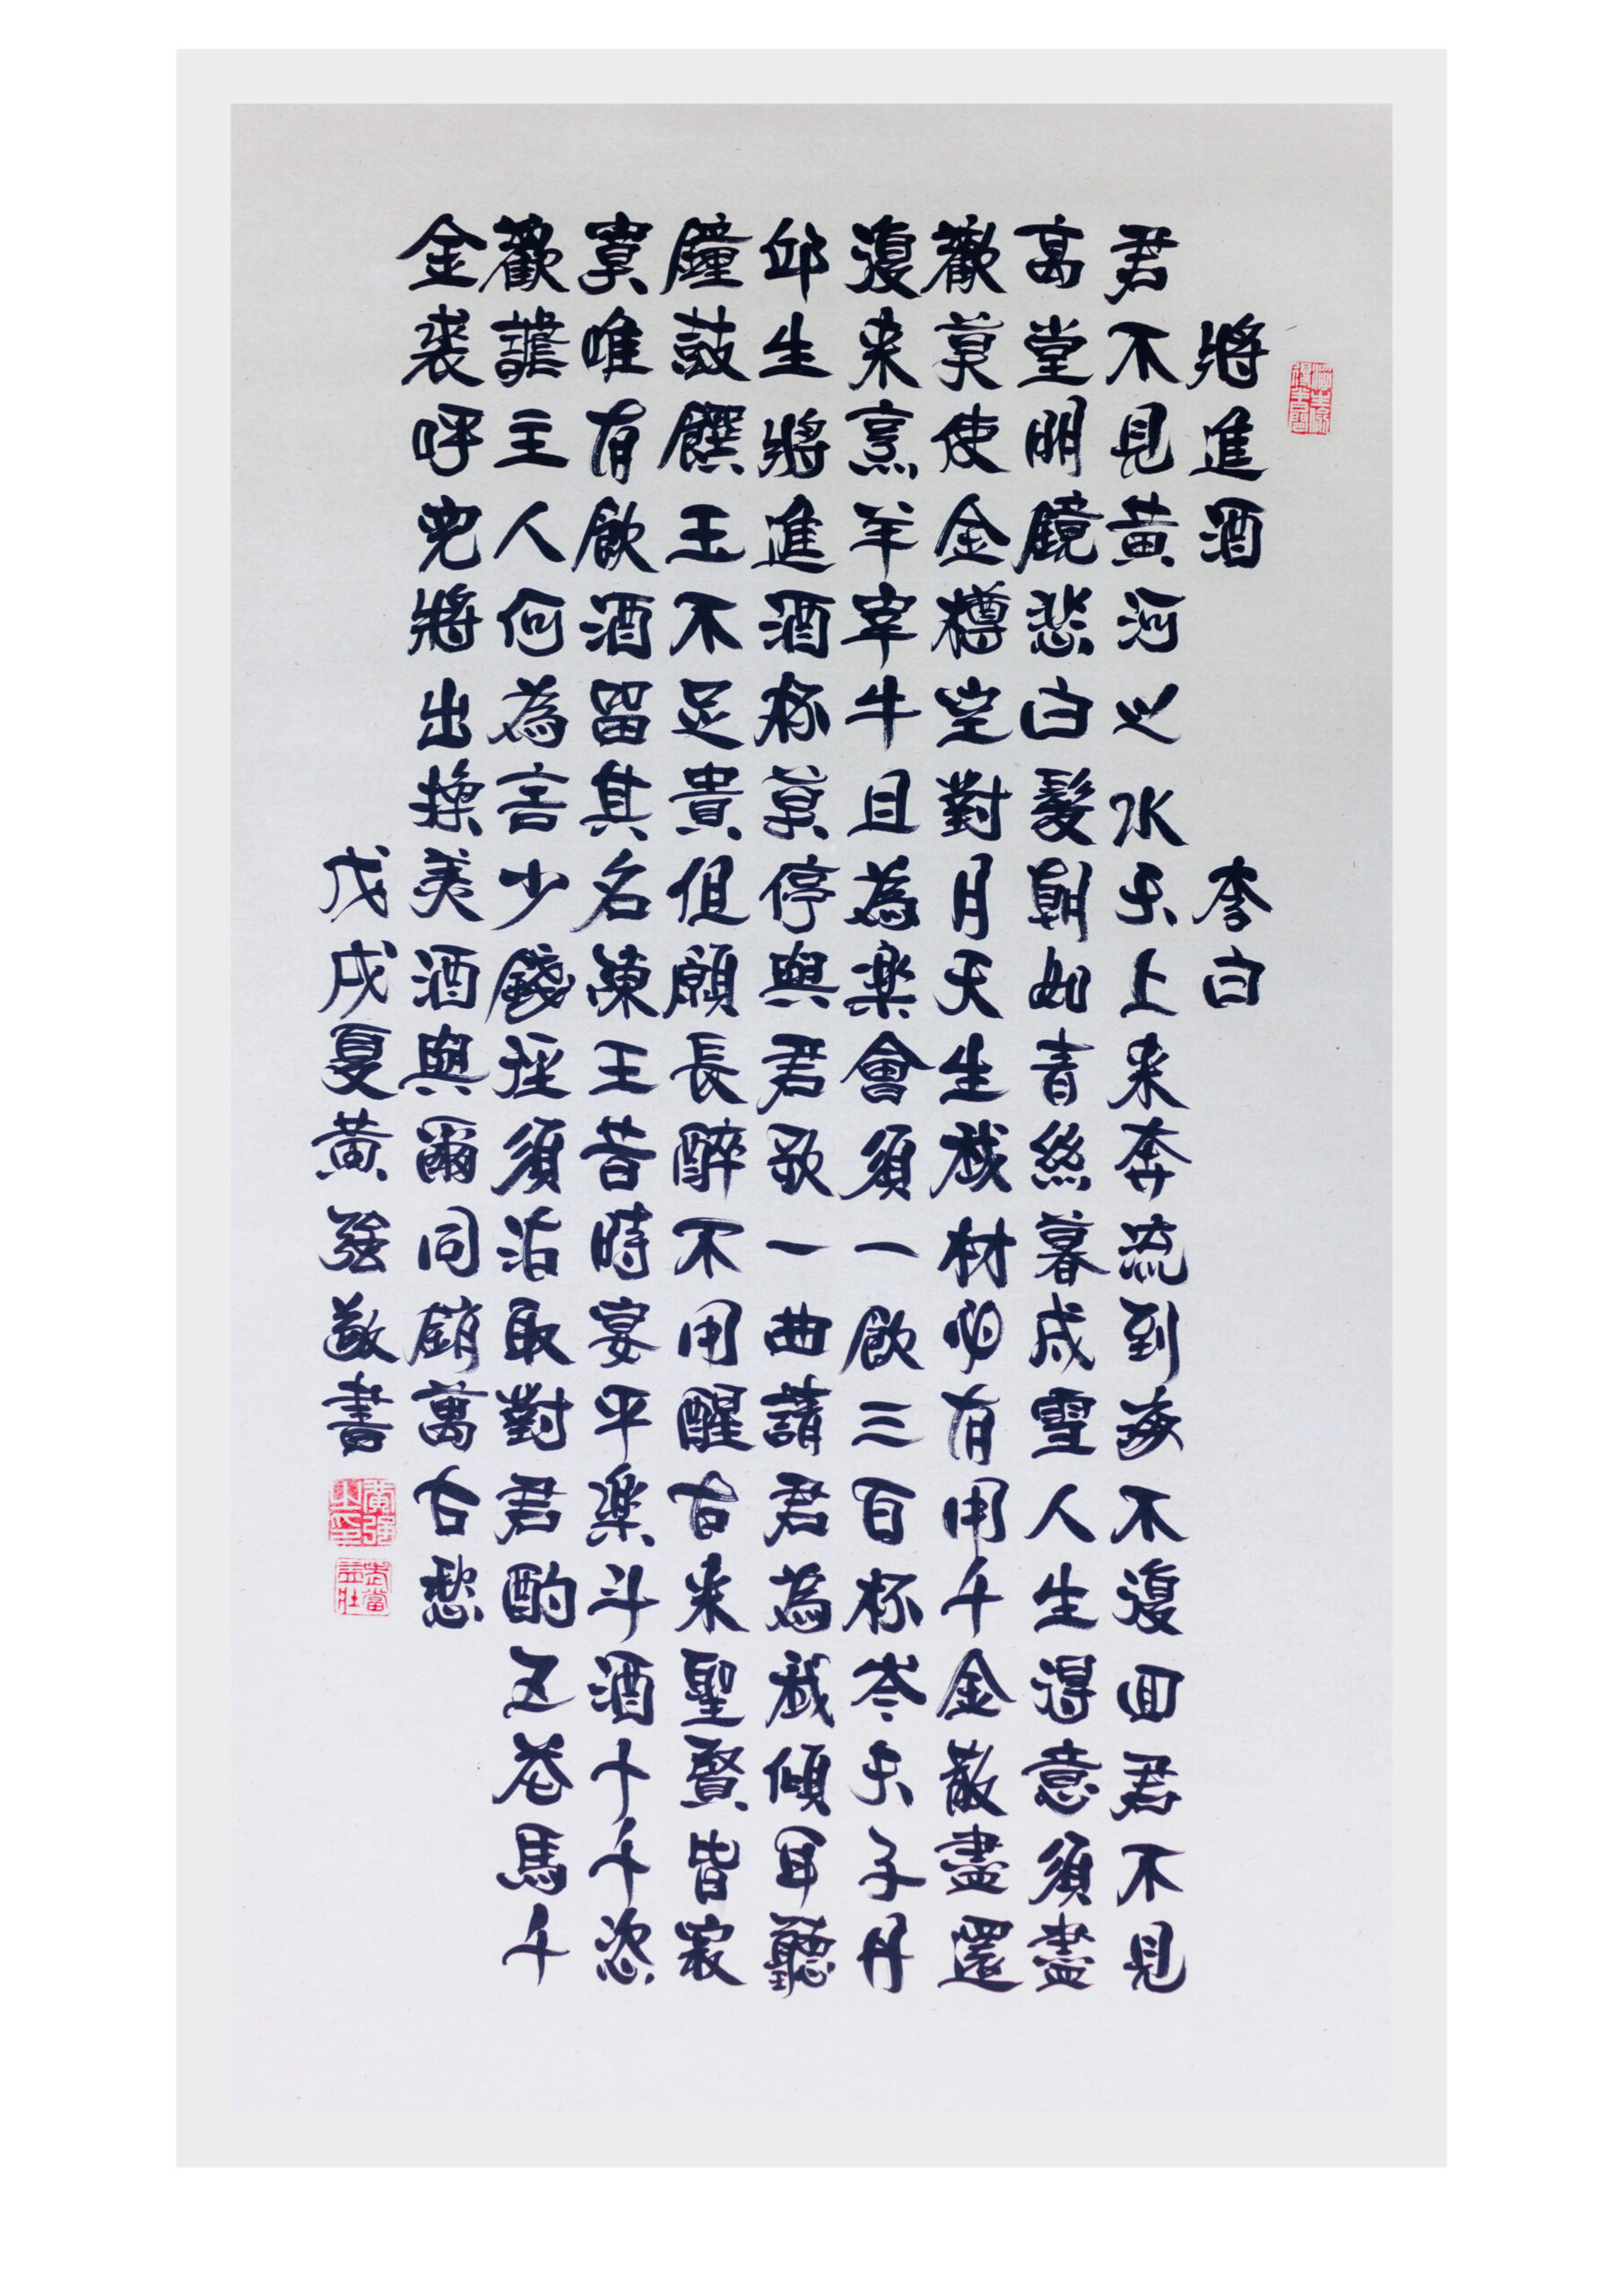 將進酒 李白
君不見黃河之水天上来奔流到海不復回君不見
高堂明鏡悲白髮朝如青絲暮成雪人生得意須盡
歡莫使金樽空對月天生我材必有用千金散盡還
復来烹羊宰牛且為楽會須一飲三百杯岑夫子丹
邱生將進酒杯莫停與君歌一曲請君為我傾耳聽
鐘鼓饌玉不足貴但願長醉不用醒古来聖賢皆寂
寞唯有飲酒留其名陳王昔時宴平楽斗酒十千恣
歡謔主人何為言少錢徑須沽取對君酌五花馬千
金裘呼兒將出換美酒與爾同銷萬古愁
戊戌夏黃強敬書
黄强之印
老當益壯